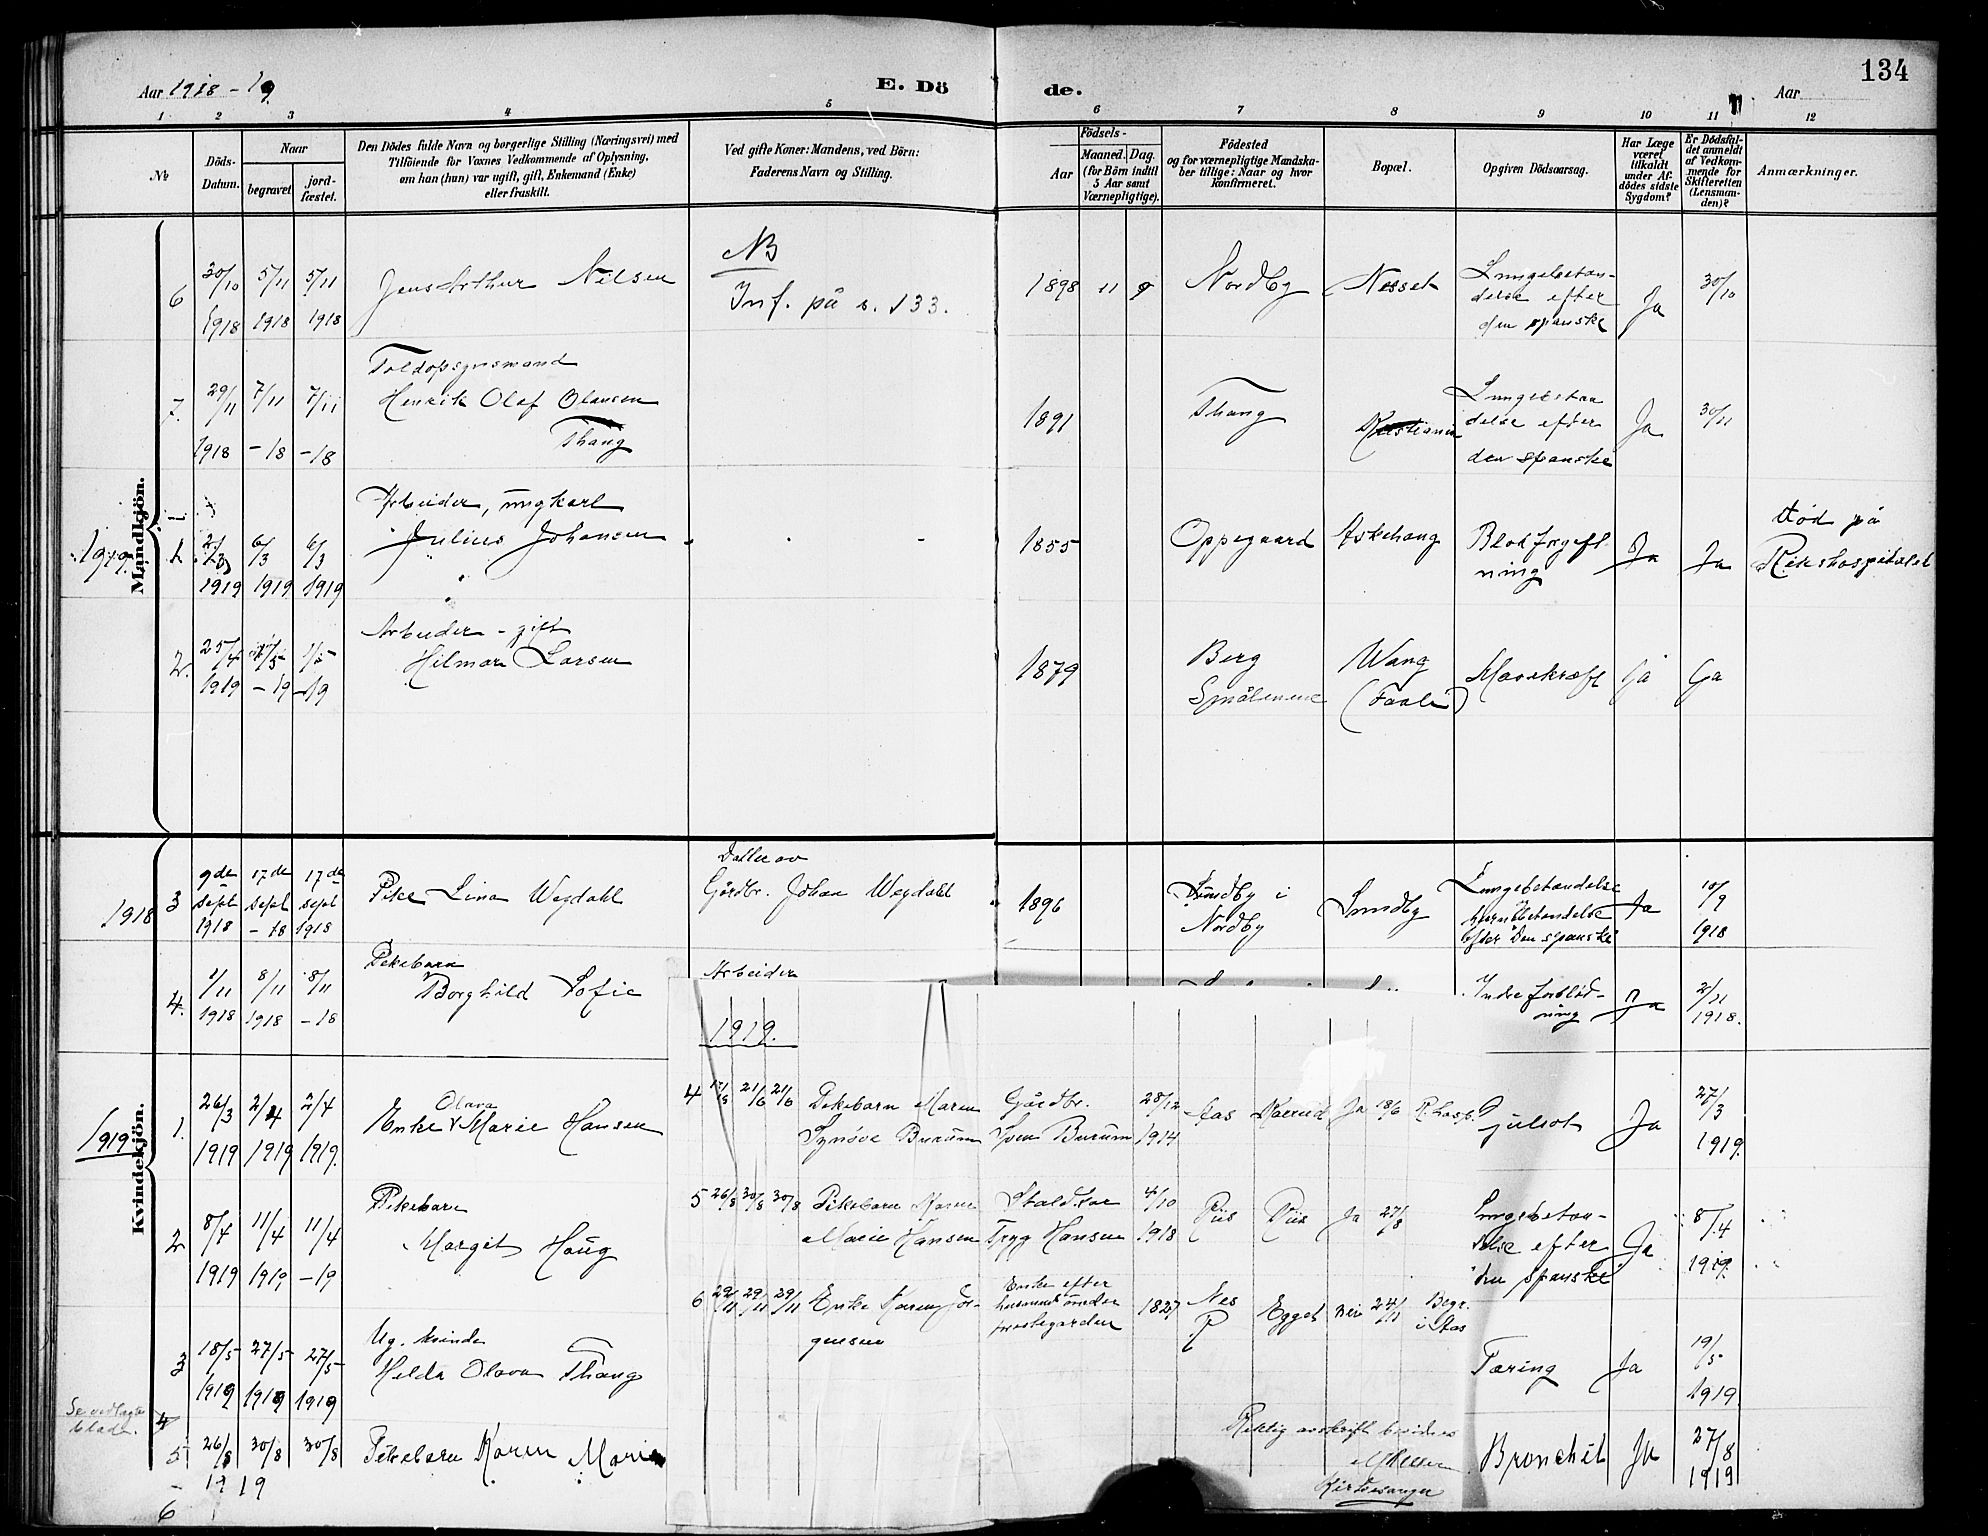 134
Aar 1918 - 19.
E. Dö
de.
Aar
1 2 3 4 5 6 7 8 9 10 11 12
№
Döds-
Datum.
Naar
begravet.
jord-
fæstet.
Den Dödes fulde Navn og borgerlige Stilling (Næringsvei) med
Tilföiende for Voxnes Vedkommende af Oplysning,
om han (hun) var ugift, gift, Enkemand (Enke)
eller fraskilt.
Ved gifte Koner: Mandens, ved Börn:
Faderens Navn og Stilling.
Födsels-
Aar
Maaned. Dag.
(for Börn indtil
5 Aar samt
Værnepligtige).
Födested
og for værnepligtige Mandska-
ber tillige: Naar og hvor
konfirmeret.
Bopæl.
Opgiven Dödsaarsag.
Har Læge
været
tilkaldt
under Af-
dödes sidste
Sygdom?
Er Dödsfal-
det anmeldt
af Vedkom-
mende for
Skifteretten
(Lensman-
den)?
Anmærkninger.
Mandkjön.
6 30/10 1918 5/11 1918 5/11 1918 Jens Arthur Nilsen
NB
Inf. på s. 133.
1898 11 9 Nordby Nesset
Lungebetæn-
delse efter
den spanske
Ja 30/10
7. 29/11 1918 7/11 -18 7/11 -18
Toldopsynsmand
Henrik Olaf Olausen
Thaug
1891 Thaug Kristiania
delse efter
den spanske
Ja 30/11
1919
1 2/3 1919 6/3 1919 6/3 1919
Arbeider, ungkarl
Julius Johansen
1855 Oppegaard Askehaug
Blodforgift-
ning
Ja Ja
død på
Rikshospitalet
2. 25/4 1919 1/5 -19 1/5 -19
Arbeider - gift
Hilmar Larsen
1879
Berg
Smålenene
Wang
Mavekræft Ja Ja
Kvindekjön.
1918
3 9de sept 1918 17de sept -18 17de sept 1918
Pike Lina Wegdahl
Datter av
Gårdbr. Johan Wegdahl
1896
Sundby i
Nordby
Sundby
Lungebetændelse
og
efter "Den spanske"
Ja 10/9 1918
4. 1/11 1918 8/11 1918 8/11 -18
Pikebarn
Borghild Sofie
Arbeider
Indre forblød-
ning
Ja 2/11 1918.
1919
1. 26/3 1919 2/4 1919 2/4 1919.
Olava
Enke Marie Hansen
gulsot Ja 27/3 1919.
2 8/4 1919 11/4 1919 11/4 -19
Pikebarn
Margit Haug
Lungebetæn-
delse efter
"den spanske"
Ja 8/4 1919.
3 18/5 1919 27/5 1919 27/5 1919
Ug. kvinde
Helda Olava Thaug
Tæring Ja 19/5 1919.
Se vedlagte
blade.
4
5 26/8 30/8 30/8 1919
Pikebarn Karen Marie
Bronchit Ja 27/8 1919
6
1919.
4 21/6 21/6
Pikebarn Maren
Synöve Burum
Gårdbr.
Sven Burum
28/12 1914 Aas Ja 18/6 R.hosp.
5 26/8 30/8 30/8
Pikebarn Karen
Marie Hansen
Tryg Hansen
4/10 1918 Riis Riis Ja 27/8
6 29/11 29/11
Enke Karen Jör-
gensen
Enke efter
husmand under
prestegarden
1827
Nes
P
Egget nei 24/11
Begr.
i Aas
Riktig avskrift bevidnes
Kirkesanger